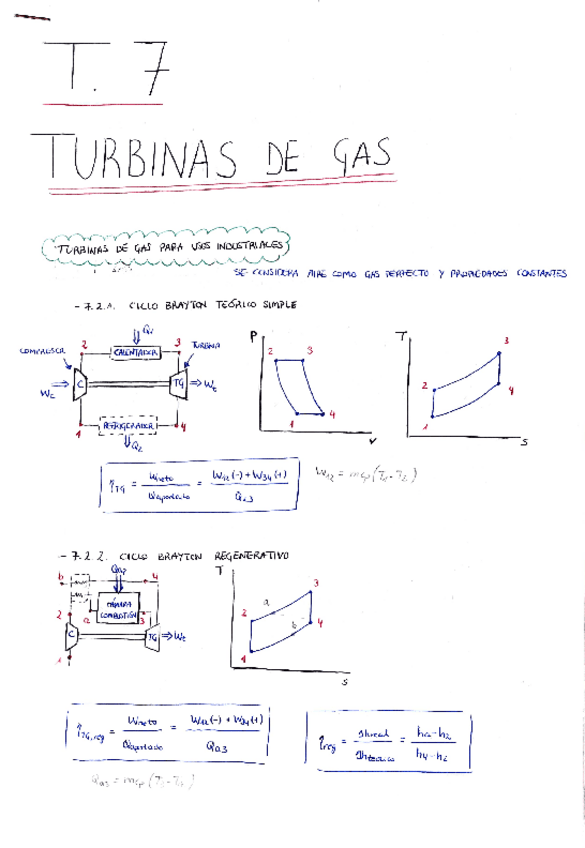 T. 7
TURBINAS DE GAS
TURBINAS DE GAS PARA USOS INDUSTRIALES
SE CONSIDERA AIRE COMO GAS PERFECTO Y PROPIEDADES CONSTANTES
- 7.2.1. CICLO BRAYTON TEÓRICO SIMPLE
COMPRESOR 2 Q1 CALENTADOR 3 TURBINA
Wc C TG Wt
1 REFRIGERADOR 4
Q2
P 2 3 1 4 V
T 3 2 4 1 S
ηTG = Wneto / Qaportado = W12(-) + W34(+) / Q23
W12 = mcp(T1-T2)
- 7.2.2. CICLO BRAYTON REGENERATIVO
b Qap 4
2 a CÁMARA COMBUSTIÓN 3
C TG Wt
1
T 3 a 2 b 4 1 S
ηTG,reg = Wneto / Qaportado = W12(-) + W34(+) / Qa3
ηreg = Δhreal / Δhteórico = ha-h2 / h4-h2